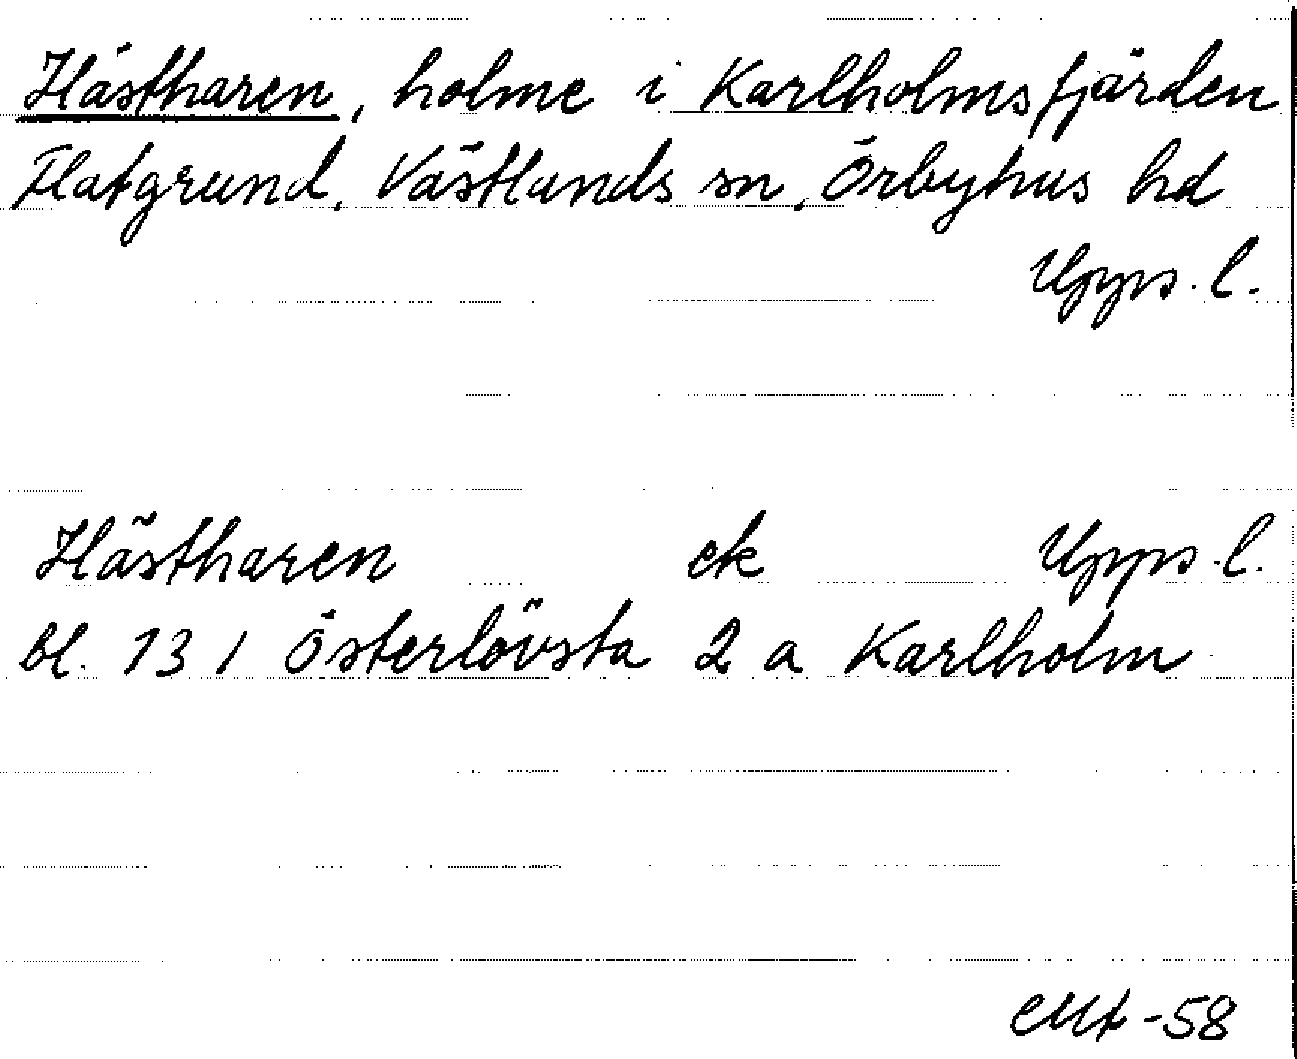 Hästharen, holme i Karlholmsfjärden
Flatgrund, Västlands sn, Örbyhus hd
Upps. l.
Hästharen ek Upps. l.
bl. 131 Österlövsta 2 a Karlholm
-58